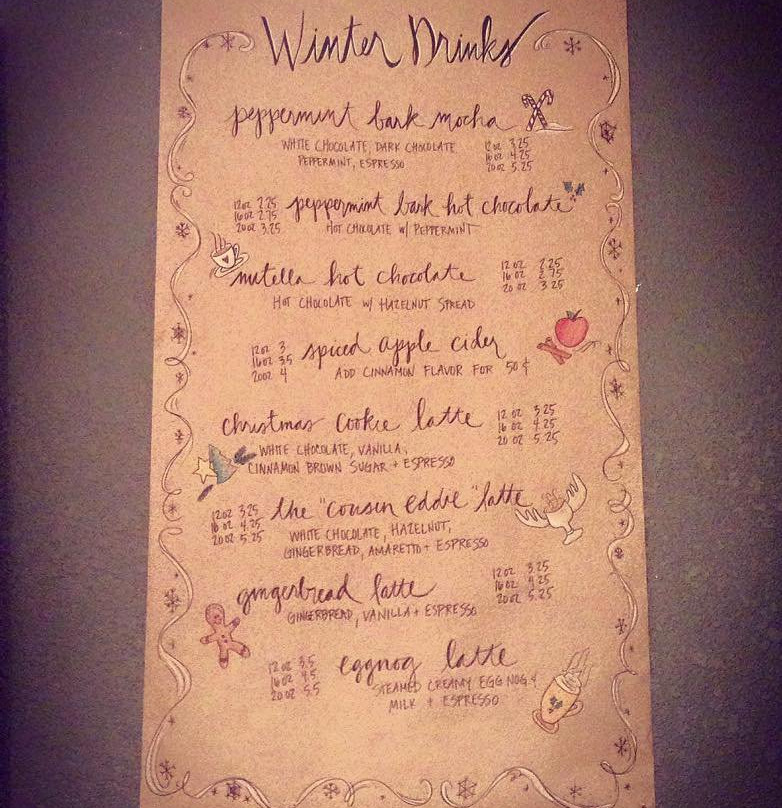 Winter Drinks
peppermint bark mocha
WHITE CHOCOLATE, DARK CHOCOLATE
PEPPERMINT, ESPRESSO
12oz 3.25
16oz 4.25
20oz 5.25
12oz 2.25
16oz 2.75
20oz 3.25
peppermint bark hot chocolate
HOT CHOCOLATE w/ PEPPERMINT
nutella hot chocolate
HOT CHOCOLATE w/ HAZELNUT SPREAD
12 oz 2.25
16 oz 2.75
20 oz 3.25
12oz 3
16oz 3.5
20oz 4
spiced apple cider
ADD CINNAMON FLAVOR FOR 50¢
christmas cookie latte
WHITE CHOCOLATE, VANILLA,
CINNAMON BROWN SUGAR + ESPRESSO
12 oz 3.25
16 oz 4.25
20 oz 5.25
12oz 3.25
16 oz 4.25
20oz 5.25
the "cousin eddie" latte
WHITE CHOCOLATE, HAZELNUT,
GINGERBREAD, AMARETTO + ESPRESSO
gingerbread latte
GINGERBREAD, VANILLA + ESPRESSO
12 oz 3.25
16 oz 4.25
20 oz 5.25
12 oz 3.5
16 oz 4.5
20 oz 5.5
eggnog latte
STEAMED CREAMY EGG NOG &
MILK + ESPRESSO